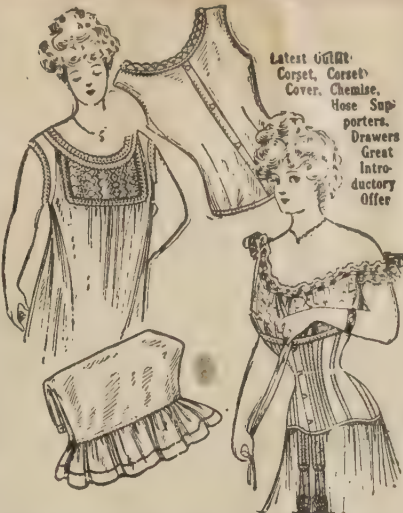 Latest Outfit
Corset, Corset
Cover, Chemise,
Hose Sup-
porters,
Drawers
Great
Intro-
ductory
Offer